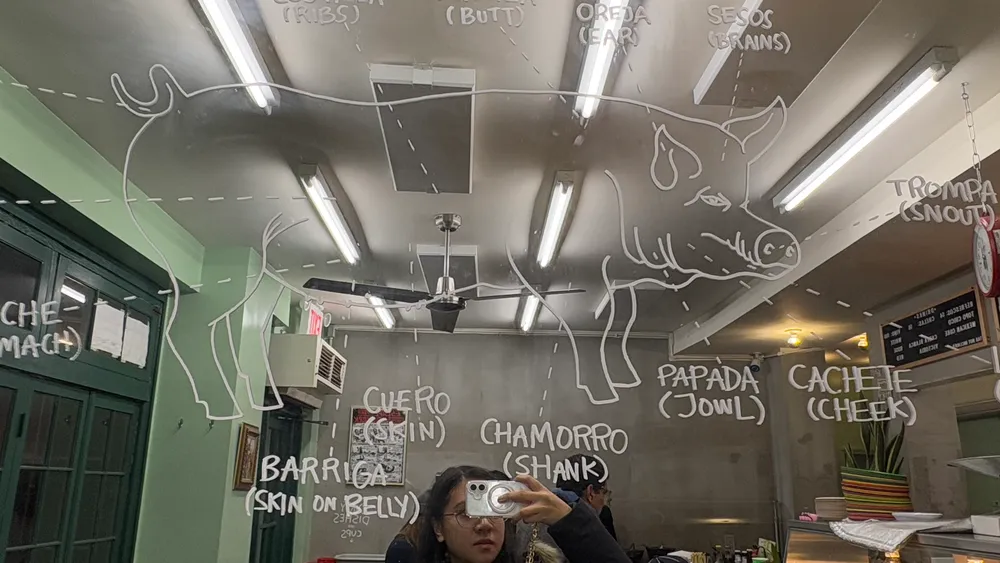 (RIBS)
(BUTT)
OREJA
(EAR)
SESOS
(BRAINS)
TROMPA
(SNOUT)
CHE
MACH)
CUERO
(SKIN)
PAPADA
(JOWL)
CACHETE
(CHEEK)
CHAMORRO
(SHANK)
BARRIGA
(SKIN ON BELLY)